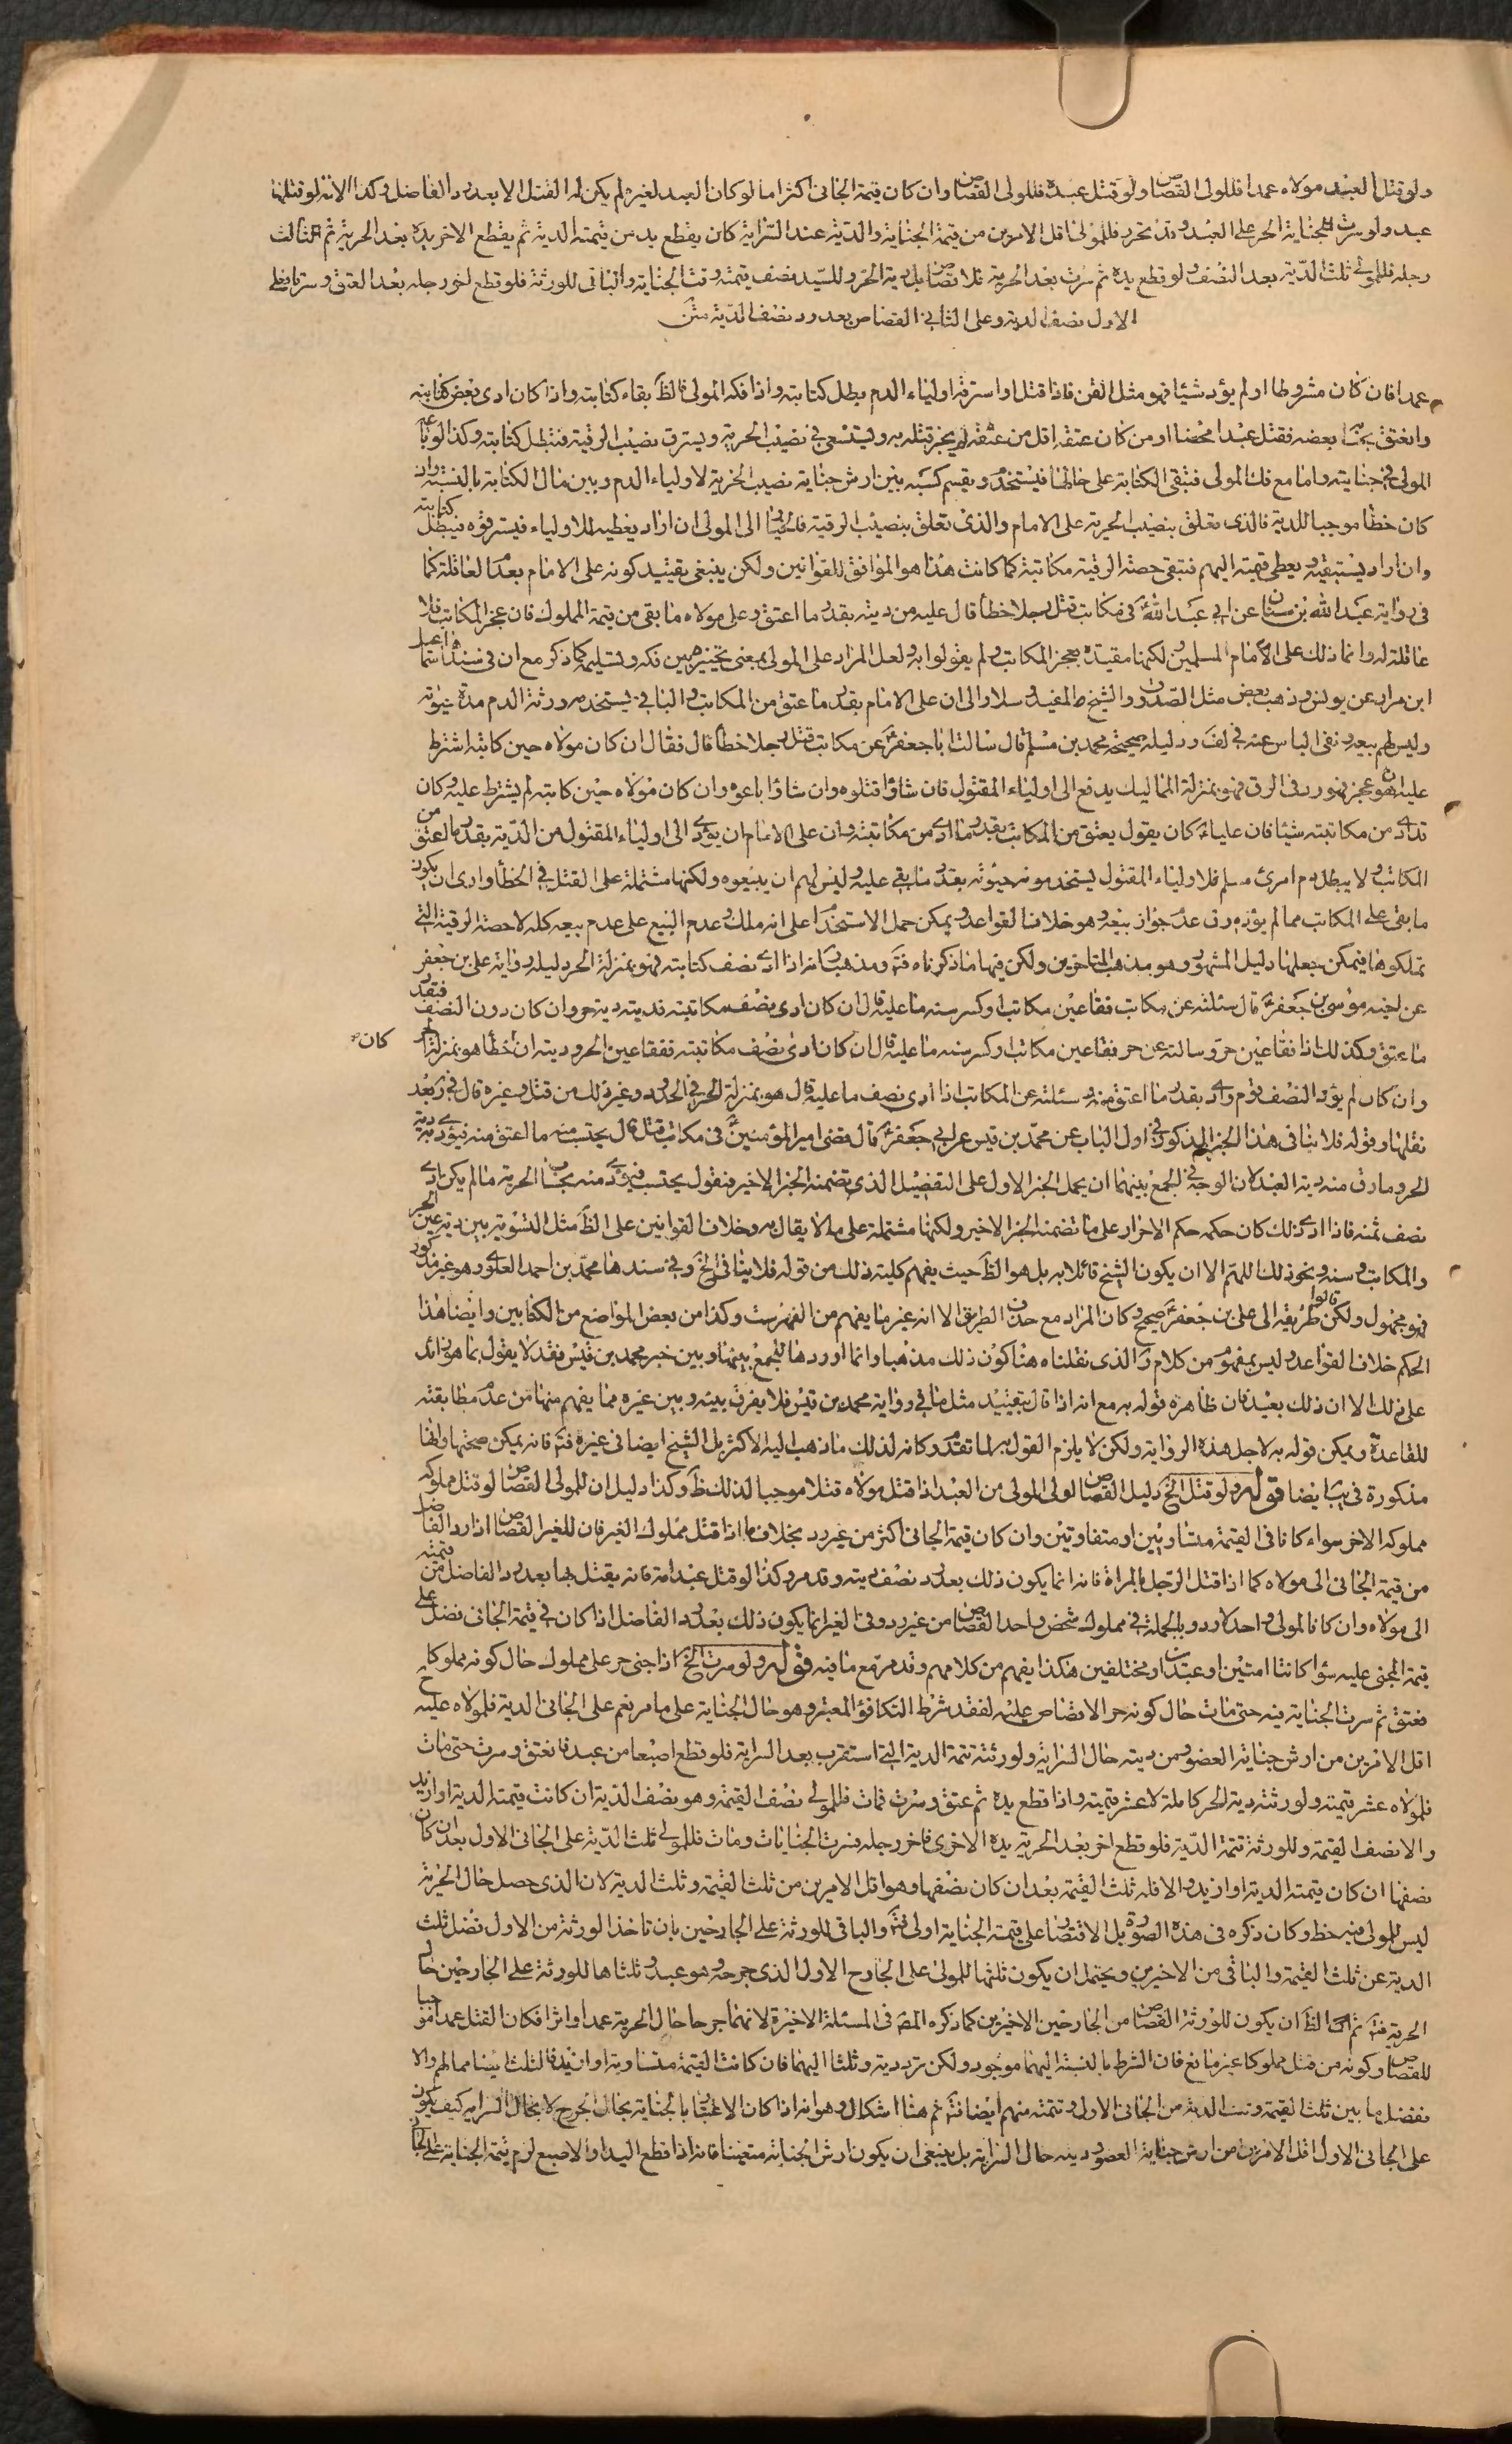 ولو قتل العبد مولاه عمدا فللولى القصاص ولو قتل عبده فللولى القصاص وان كان قيمة الجانى اكثر اما لو كان العبد لغيره لم يكن له القتل الا بعد رد الفاضل وكذا الامة لو قتلها
عبد ولو سرت الجناية الحر على العبد وقد تحرر فللمولى اقل الامرين من قيمة الجناية والدية عند السراية كان يقطع يد من قيمته الدية ثم يقطع الاخر يده بعد الحرية ثم الثالث
رجله فللمولى ثلث الدية بعد النصف ولو قطع يده ثم سرت بعد الحرية فلا قصاص بل دية الحر وللسيد نصف قيمته وقت الجناية والباقى للورثة فلو قطع اخر رجله بعد العتق وسرتا فعلى
الاول نصف الدية وعلى الثانى القصاص بعد رد نصف الدية متن
عمدا فان كان مشروطا او لم يؤد شيئا فهو مثل القن فاذا قتل او استرقه اولياء الدم بطل كتابته واذا فكه المولى فالظ بقاء كتابته واذا كان ادى بعض كتابته
وانعتق بعضه فقتل عبدا محضا او من كان عتقه اقل من عتقه لم يجز قتله به ويستسعى فى نصيب الحرية ويسترق نصيب الرقية فتبطل كتابته وكذا لو باعه
المولى فى جنايته واما مع فك المولى فتبقى الكتابة على حالها فيستخدم ويقسم كسبه بين ارش جناية نصيب الحرية لاولياء الدم وبين مال الكتابة بالنسبة وان
كان خطأ موجبا للدية فالذى تعلق بنصيب الحرية على الامام والذى تعلق بنصيب الرقية فالخيار الى المولى ان اراد يعطيه للاولياء فيسترقوه فيبطل كتابته
وان اراد يستبقيه ويعطى قيمته اليهم فتبقى حصة الرقية مكاتبة كما كانت هذا هو الموافق للقوانين ولكن ينبغى تقييد كونه على الامام بعدم العاقلة كما
فى رواية عبد الله بن سنان عن ابى عبد الله ع فى مكاتب قتل رجلا خطأ قال عليه من ديته بقدر ما اعتق وعلى مولاه ما بقى من قيمة المملوك فان عجز المكاتب فلا
عاقلة له وانما ذلك على الامام المسلمين لكنها مقيدة بعجز المكاتب ولم يقولوا به ولعل المراد على المولى بمعنى تخييره بين فكه وتسليمه كما ذكر مع ان فى سندها اسماعيل
ابن مرار عن يونس وذهب بعض مثل الصدوق والشيخ المفيد وسلار الى ان على الامام بقدر ما عتق من المكاتب والباقى يستخدمه ورثة الدم مدة حيوته
وليس لهم بيعه ونفى الباس عنه فى لف ودليله صحيحة محمد بن مسلم قال سالت ابا جعفر ع عن مكاتب قتل رجلا خطأ قال فقال ان كان مولاه حين كاتبه اشترط
عليه ان هو عجز فهو رد فى الرق فهو بمنزلة المماليك يدفع الى اولياء المقتول فان شاؤا قتلوه وان شاؤا باعوه وان كان مولاه حين كاتبه لم يشترط عليه وكان
قد ادى من مكاتبته شيئا فان عليا ع كان يقول يعتق من المكاتب بقدر ما ادى من مكاتبته وان على الامام ان يؤدى الى اولياء المقتول من الدية بقدر ما اعتق من
المكاتب ولا يبطل دم امرئ مسلم فلاولياء المقتول يستخدمونه حيوته بقدر ما بقى عليه وليس لهم ان يبيعوه ولكنها مشتملة على القتل فى الخطأ وارى ان يكون
ما بقى على المكاتب مما لم يؤد رق عدم جواز بيعه وهو خلاف القواعد ويمكن حمل الاستخدام على انه ملك وعدم البيع على عدم بيعه كله لا حصة الرقية التى
تملكوها فيمكن جعلها دليل المشهور وهو مذهب المتاخرين ولكن فيها ما ذكرناه فت ومذهب انه اذا ادى نصف كتابته فهو بمنزلة الحر دليله رواية على بن جعفر
عن اخيه موسى بن جعفر ع قال سئلته عن مكاتب فقا عين مكاتب او كسر سنه ما عليه قال ان كان ادى نصف مكاتبته فديته دية حر وان كان دون النصف فبقدر
ما عتق وكذلك اذا فقا عين حر وسالته عن حر فقا عين مكاتب او كسر سنه ما عليه قال ان كان ادى نصف مكاتبته تفقا عين الحر او ديته ان كان خطأ هو بمنزلة الحر
وان كان لم يؤد النصف قوم وادى بقدر ما اعتق منه وسئلته عن المكاتب اذا ادى نصف ما عليه قال هو بمنزلة الحر فى الحدود وغير ذلك من قتل وغيره قال فى بعد
نقلها وقوله فلا ينافى هذا الخبر المذكور فى اول الباب عن محمد بن قيس عن ابى جعفر ع قال قضى امير المؤمنين ع فى مكاتب قتل قال يحتسب منه ما اعتق منه فيؤدى به دية
الحر وما رق منه دية العبد لان الوجه فى الجمع بينهما ان يحمل الخبر الاول على التفصيل الذى تضمنه الخبر الاخير فنقول يحتسب فيؤدى منه بحساب الحرية ما لم يكن ادى
نصف ثمنه فاذا ادى ذلك كان حكمه حكم الاحرار على ما تضمنه الخبر الاخير ولكنها مشتملة على ما لا يقال به وخلاف القوانين على الظ مثل التسوية بين دية عين الحر
والمكاتب وسنه ونحو ذلك اللهم الا ان يكون الشيخ قائلا به بل هو الظ حيث يفهم كليته ذلك من قوله فلا ينافى الخ وفى سندها محمد بن احمد العلوى وهو غير مذكور
فهو مجهول ولكن قالوا طريقه الى على بن جعفر ع صحيح وكان المراد مع حذف الطريق الا انه غير ما يفهم من الفهرست وكذا من بعض المواضع من الكتابين وايضا هذا
الحكم خلاف القواعد وليس بمفهوم من كلام الذى نقلناه هنا كون ذلك مذهبا وانما اوردها للجمع بينها وبين خبر محمد بن قيس فقد لا يقول بما هو زائد
على ذلك الا ان ذلك بعيد فان ظاهره قوله به مع انه اذا قال بتقييد مثل ما فى رواية محمد بن قيس فلا يفرق بينه وبين غيره مما يفهم منها من عدم مطابقته
للقاعدة ويمكن قوله به لاجل هذه الرواية ولكن لا يلزم القول به لما تقدم وكانه لذلك ما ذهب اليه الاكثر بل الشيخ ايضا فى غيره فت فانه يمكن صحتها وانها
مذكورة فى يب ايضا قوله ولو قتل الخ دليل القصاص لولى المولى من العبد اذا قتل مولاه قتلا موجبا لذلك ظ وكذا دليل ان للمولى القصاص لو قتل مملوكه
مملوكه الاخر سواء كانا فى القيمة متساويين او متفاوتين وان كان قيمة الجانى اكثر من غير رد بخلاف ما اذا قتل مملوك الغير فان للغير القصاص اذا رد الفاضل
من قيمة الجانى الى مولاه كما اذا قتل الرجل بالمراة فانه انما يكون ذلك بعد رد نصف ديته وقد مر وكذا لو قتل عبد امة فانه يقتل بها بعد رد الفاضل من قيمته
الى مولاه وان كان المولى واحدا لا رد وبالجملة فى مملوك شخص واحد القصاص من غير رد وفى الغير انما يكون ذلك بعد رد الفاضل اذا كان فى قيمة الجانى فضل على
قيمة المجنى عليه سواء كانتا امتين او عبدين او مختلفين هكذا يفهم من كلامهم وقد مر مع ما فيه قوله ولو سرت الخ اذا جنى حر على مملوك حال كونه مملوكا
فعتق ثم سرت الجناية فيه حتى مات حال كونه حرا لا قصاص عليه لفقد شرط التكافؤ المعتبر وهو حال الجناية على ما مر نعم على الجانى الدية فلمولاه عليه
اقل الامرين من ارش جناية العضو ومن ديته حال السراية ولورثته تتمة الدية التى استقرت بعد السراية فلو قطع اصبعا من عبد فانعتق وسرت حتى مات
فلمولاه عشر قيمته ولورثته دية الحر كاملة لا عشر قيمته واذا قطع يده ثم عتق وسرت فمات فللمولى نصف القيمة وهو نصف الدية ان كانت قيمته الدية او ازيد
والا نصف القيمة وللورثة تتمة الدية فلو قطع اخر بعد الحرية يده الاخرى فاخر رجله فسرت الجنايات ومات فللمولى ثلث الدية على الجانى الاول بعد ان كان
نصفها ان كان قيمته الدية او ازيد والا فله ثلث القيمة بعد ان كان نصفها وهو اقل الامرين من ثلث القيمة وثلث الدية لان الذى حصل حال الحرية
ليس للمولى فيه حظ وكان ذكره فى هذه الصورة بل الاقتصار على قيمة الجناية اولى فت والباقى للورثة على الجارحين بان تاخذ الورثة من الاول فضل ثلث
الدية عن ثلث القيمة والباقى من الاخيرين ويحتمل ان يكون ثلثها للمولى على الجارح الاول الذى جرحه وهو عبد وثلثاها للورثة على الجارحين حال
الحرية فت ثم ان الظ ان يكون للورثة القصاص من الجارحين الاخيرين كما ذكره المص فى المسئلة الاخيرة لانهما جرحا حال الحرية عمدا واثرا فكان القتل عمدا موجبا
للقصاص وكونه من قتل مملوكا غير مانع فان الشرط بالنسبة اليهما موجود ولكن برد دية وثلثا اليهما فان كانت القيمة متساوية او ازيد فالثلث ايضا مما لهم والا
نفضل ما بين ثلث القيمة وثلث الدية من الجانى الاول وتتمته منهم ايضا فت ثم هنا اشكال وهو انه اذا كان الاعتبار بالجناية بحال الجرح لا بحال السراية كيف يكون
على الجانى الاول اقل الامرين من ارش جناية العضو وديته حال السراية بل ينبغى ان يكون ارش الجناية متعينا فانه اذا قطع اليد او الاصبع لزم قيمة الجناية على الجانى
كان